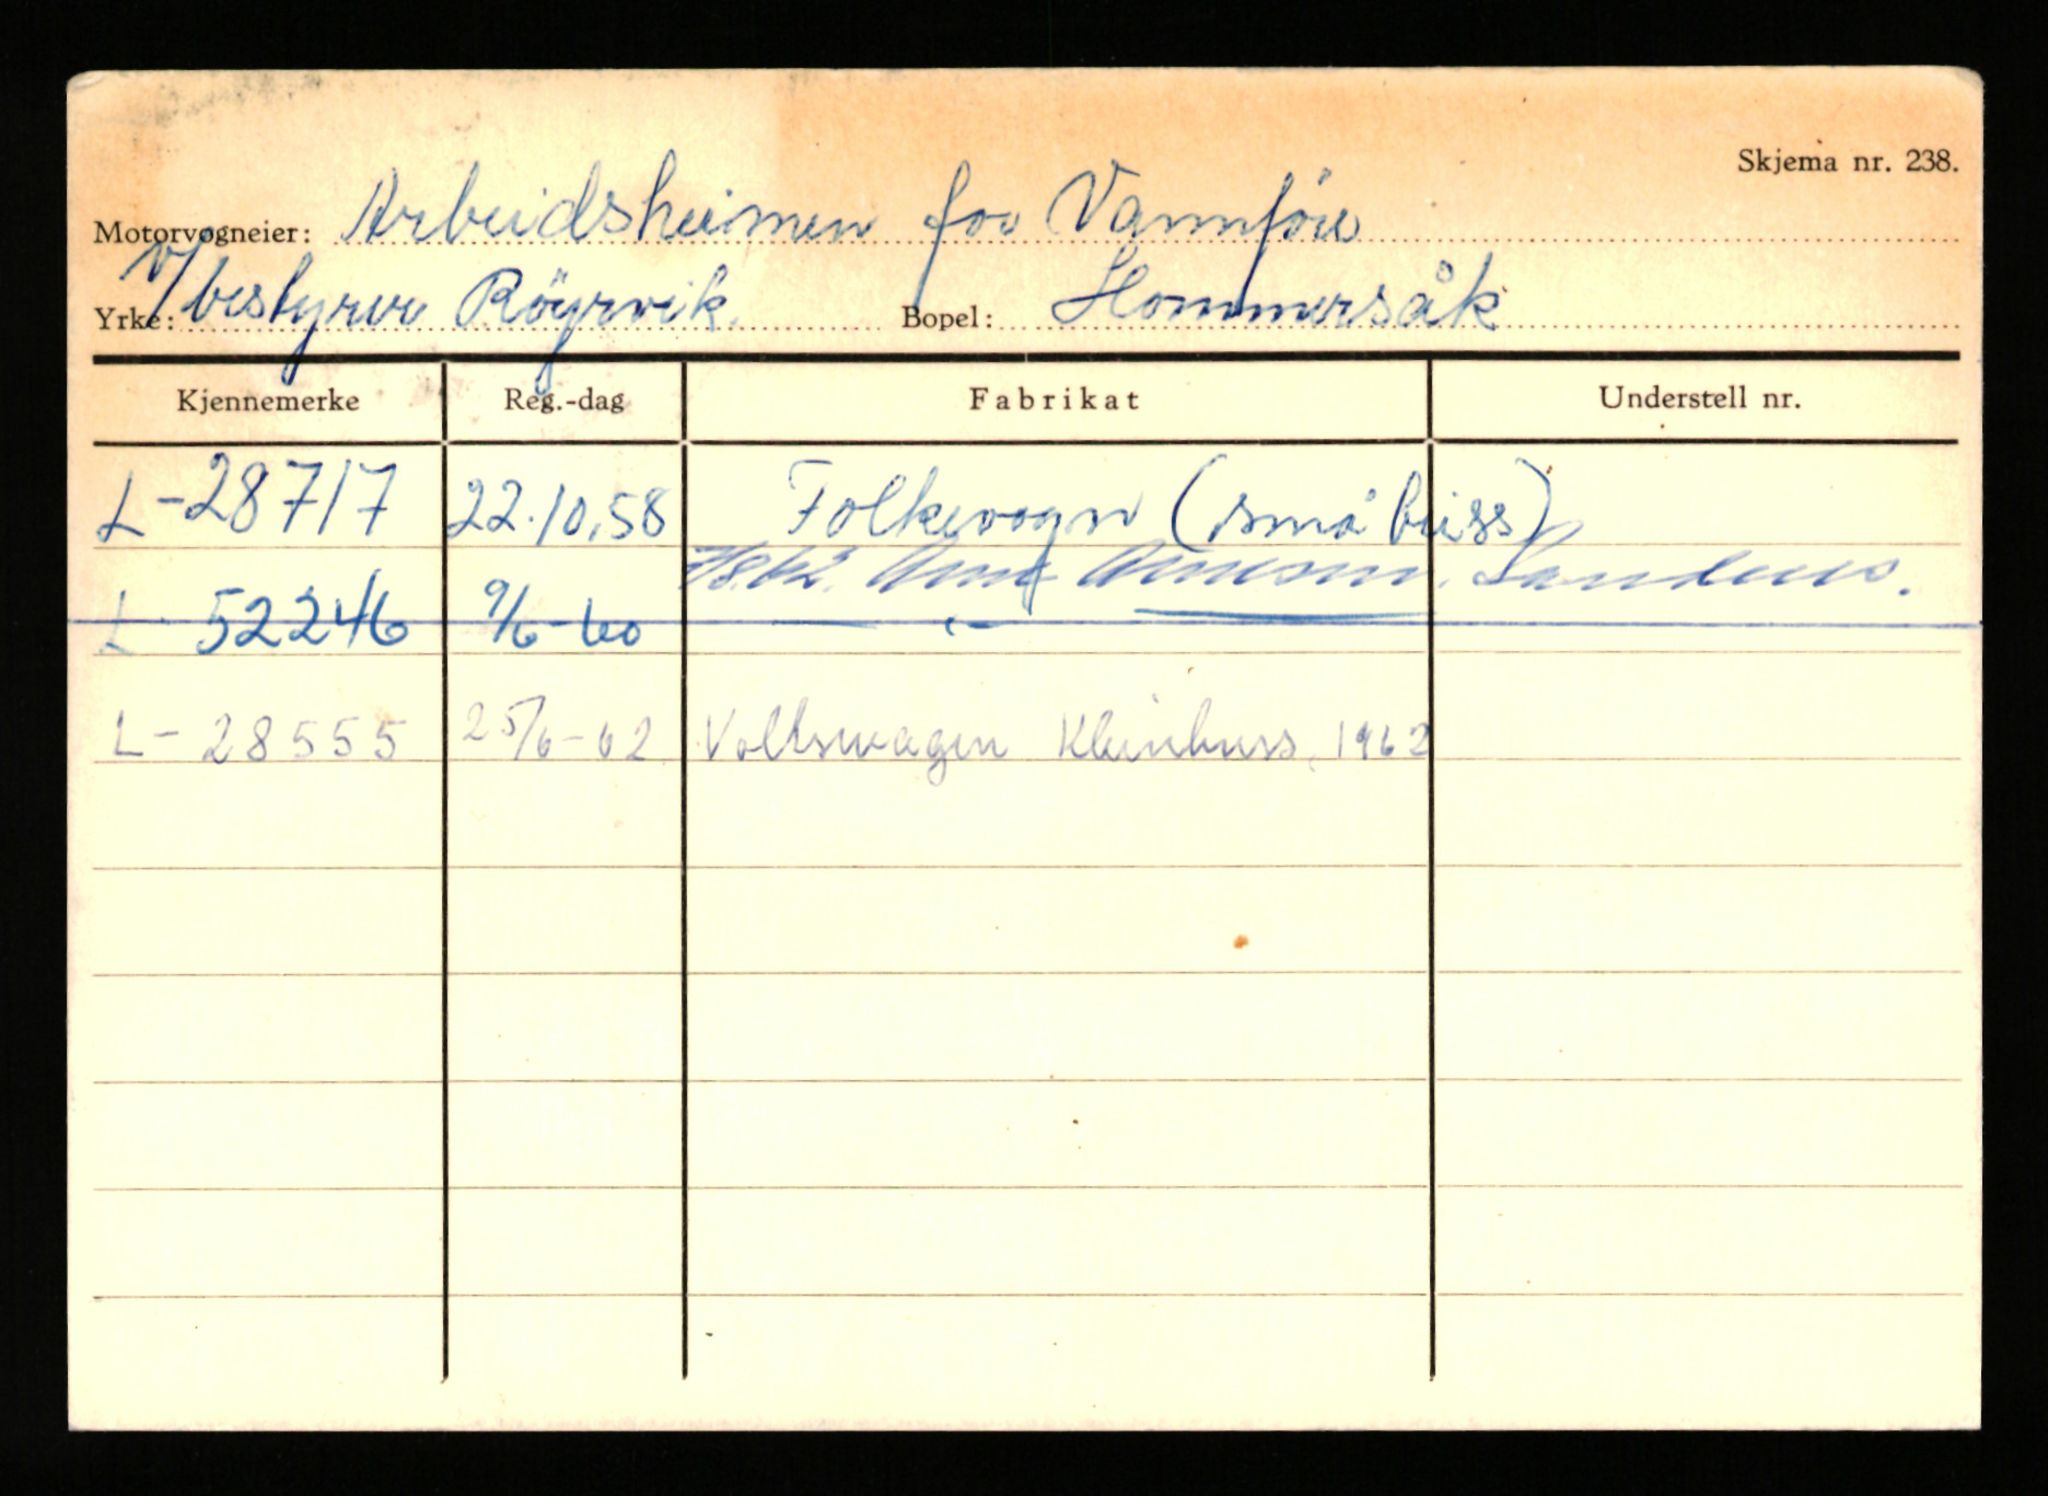 Skjema nr. 238.
Motorvogneier: Arbeidsheimen for Vanföre
Yrke: v/bestyrer Röyrvik. Bopel: Hommersåk
Kjennemerke Reg.-dag Fabrikat Understell nr.
L-28717 22.10.58 Folkevogn (små buss)
Arne Sandnes.
L 52246 9/6-60
L-28555 25/6-62 Volkswagen Kleinbuss, 1962